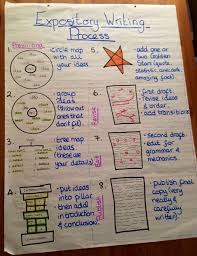 Expository Writing
Process
Prewriting
1.
-circle map
with all
your ideas
2.
-group
ideas
(throw out
ones that
don't fit).
3.
-Tree map
ideas
(these are
your details)
4.
-put ideas
into pillar
-then add
introduction
& conclusion!
5.
-add one or
two Golden
Stars (quote,
statistic, anecdote,
amazing fact)
6.
-first draft.
-revise ideas
& order
-add transitions
Revise
7.
-Second draft.
-edit for
grammar &
mechanics.
Edit
8.
-publish final
copy (very
neatly &
carefully
written)
Publish